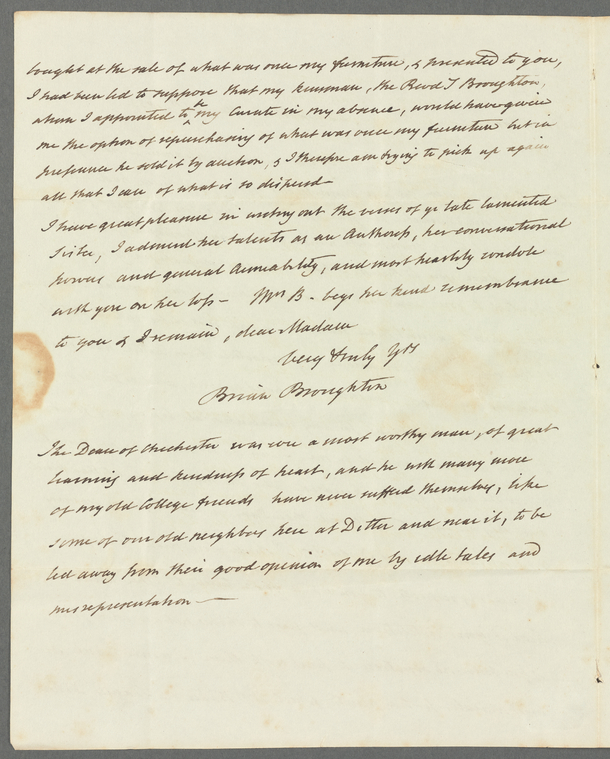 bought at the sale of what was once my furniture, & presented to you,
I had been led to suppose that my kinsman, the Revd T Broughton,
whom I appointed to be my Curate in my absence, would have given
me the option of repurchasing of what was once my furniture but in
preference he sold it by auction, & I therefore am trying to pick up again
all that I can of what is so dispersd—
I have great pleasure in writing out the verses of yr late lamented
Sister, I admired her talents as an Authoress, her conversational
powers and general Amiability, and most heartily condole
with you on her loss— Mrs B- begs her kind remembrance
to you & I remain, dear Madam
Very truly Yrs
Brian Broughton
The Dean of Chichester was a most worthy man, of great
learning and kindness of heart, and he with many more
of my old College friends have never sufferd themselves, like
some of our old neighbors here at Ditton and near it, to be
led away from their good opinion of me by idle tales and
misrepresentation—